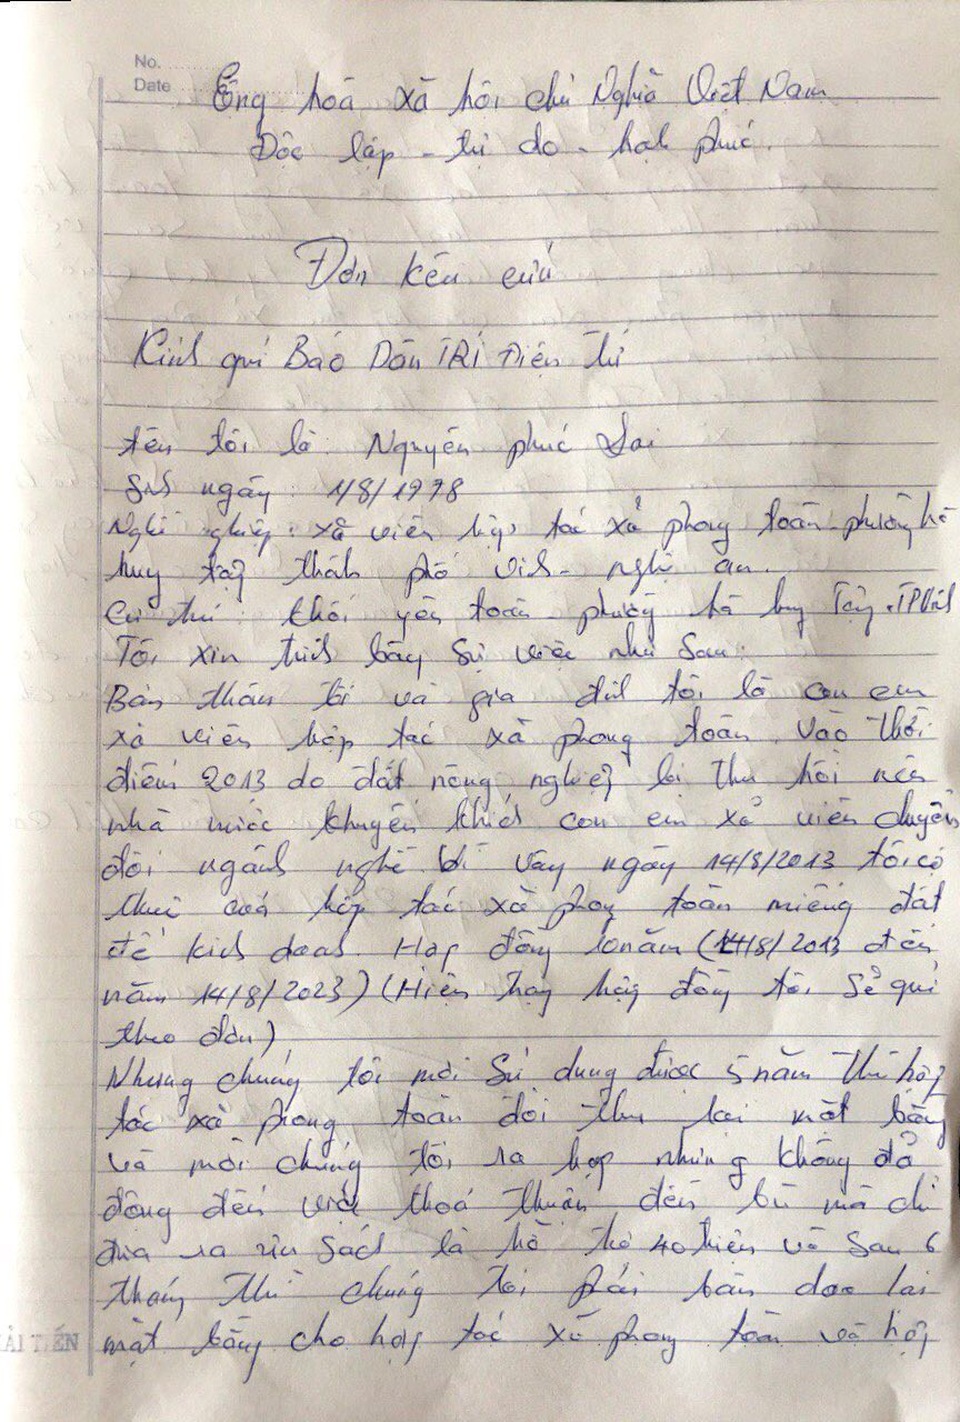 No.
Date
Cộng hoà xã hội chủ Nghĩa Việt Nam
Độc lập - tự do - hạnh phúc.
Đơn kêu cứu
Kính gửi Báo DÂN TRÍ Điện Tử
tên tôi là: Nguyễn phúc Lai
Sinh ngày: 1/8/1978
Nghề nghiệp: xã viên hợp tác xã phong toàn - phường hà
huy tập thành phố vinh - nghệ an.
Cư trú: khối yên toàn - phường hà huy Tập. TP Vinh
Tôi xin trình bày sự việc như sau:
Bản thân tôi và gia đình tôi là con em
xã viên hợp tác xã phong toàn. Vào thời
điểm 2013 do đất nông nghiệp bị thu hồi nên
nhà nước khuyến khích con em xã viên chuyển
đổi ngành nghề bởi vậy ngày 14/8/2013 tôi có
thuê của hợp tác xã phong toàn miếng đất
để kinh doanh. Hợp đồng 10 năm (14/8/2013 đến
năm 14/8/2023) (Hiện hợp đồng tôi sẽ gửi
theo đơn)
Nhưng chúng tôi mới sử dụng được 5 năm thì hợp
tác xã phong toàn đòi thu lại mặt bằng
và mời chúng tôi ra họp nhưng không đả
động đến việc thoả thuận đền bù mà chỉ
đưa ra chính sách là hỗ trợ 40 triệu và sau 6
tháng thì chúng tôi phải bàn giao lại
mặt bằng cho hợp tác xã phong toàn và hợp
ẢI TIẾN